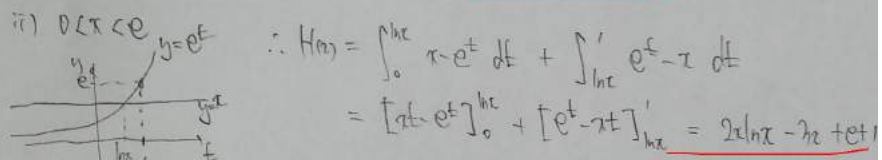 ii) 0<x<e
y=e^t
y
e
y=x
lnx
t
∴ H(x) = ∫_0^{lnx} x-e^t dt + ∫_{lnx}^1 e^t-x dt
= [xt-e^t]_0^{lnx} + [e^t-xt]_{lnx}^1 = 2xlnx-3x+e+1